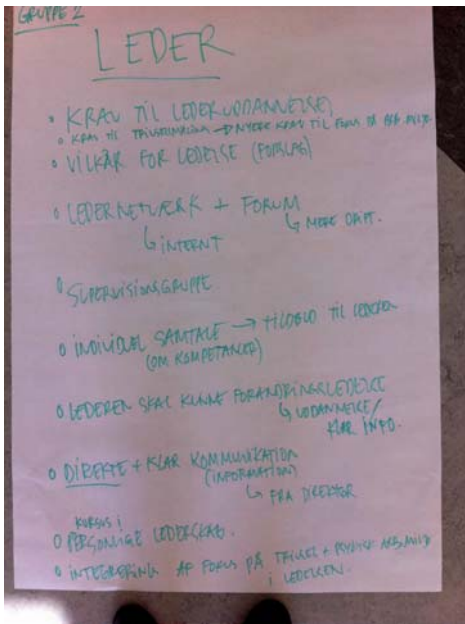 GRUPPE 2
LEDER
• KRAV TIL LEDERUDDANNELSE
o KRAV TIL → KRAV TIL FOKUS PÅ
• VILKÅR FOR LEDELSE (FORSLAG)
o LEDERNETVÆRK + FORUM
↳ INTERNT ↳ MERE OFFT.
o SUPERVISIONSGRUPPE
o INDIVIDUEL SAMTALE → TILBUD TIL LEDEREN
(OM KOMPETANCER)
o LEDEREN SKAL KUNNE FORANDRINGSLEDELSE
↳ UDDANNELSE/
KLAR INFO.
o DIREKTE + KLAR KOMMUNIKATION
(INFORMATION)
↳ FRA DIREKTØR
KURSUS I
o PERSONLIGE LEDERSKAB.
o INTEGRERING AF FOKUS PÅ TRIVSEL + PSYKISK ARB.MILJØ
I LEDELSEN.